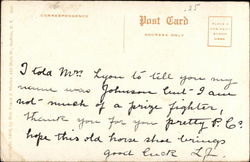 .25
CORRESPONDENCE
Post Card
ADDRESS ONLY
I told Mrs. Lyon to tell you my
name was Johnson but I am
not much of a prize fighter,
thank you for you pretty P.C.
hope this old horse shoe brings
good luck L.J.